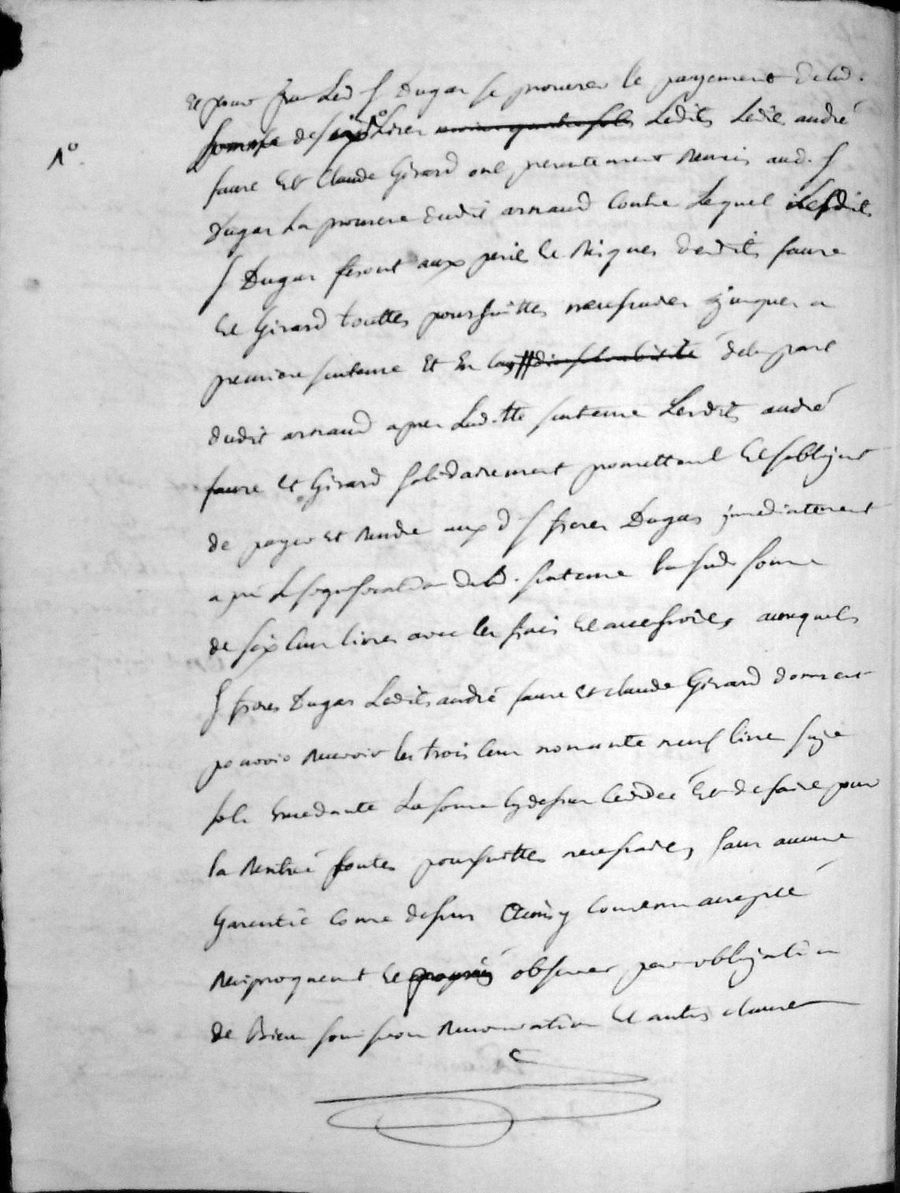 et pour que Led S Dugas se procurer le payement de lad.
somme de six livres moins quatre sols Ledits Ledit andré
1°
faure Et Claude Girard ont presentement Remis aud. S
Dugas La promesse dudit arnaud Contre Lequel Lesdits
S Dugas feront aux perils Et Risques desdits faure
Et Girard touttes poursuittes necessaires jusques a
premiere sentence Et En Cas dinsolvabilité de la part
dudit arnaud apres Laditte sentence Lesdits andré
faure Et Girard solidairement promettent Et sobligent
de payer Et Rendre aux d S freres Dugas jmediatement
apres de lad. sentence la susd somme
de six Cent livres avec les frais Et accessoires auxquels
S freres Dugas Ledits andré faure Et Claude Girard donnent
pouvoir Recevoir les trois Cent nonante neuf livres seize
sols Excedante La somme Cydessus Cedée Et de faire pour
la Rentrée toutes poursuittes necessaires sans aucune
Garentie Comme dessus Ainsy Convenu accepté
Reciproquement Et promis observer par obligation
de Biens soumission Renonciation Et autres clauses